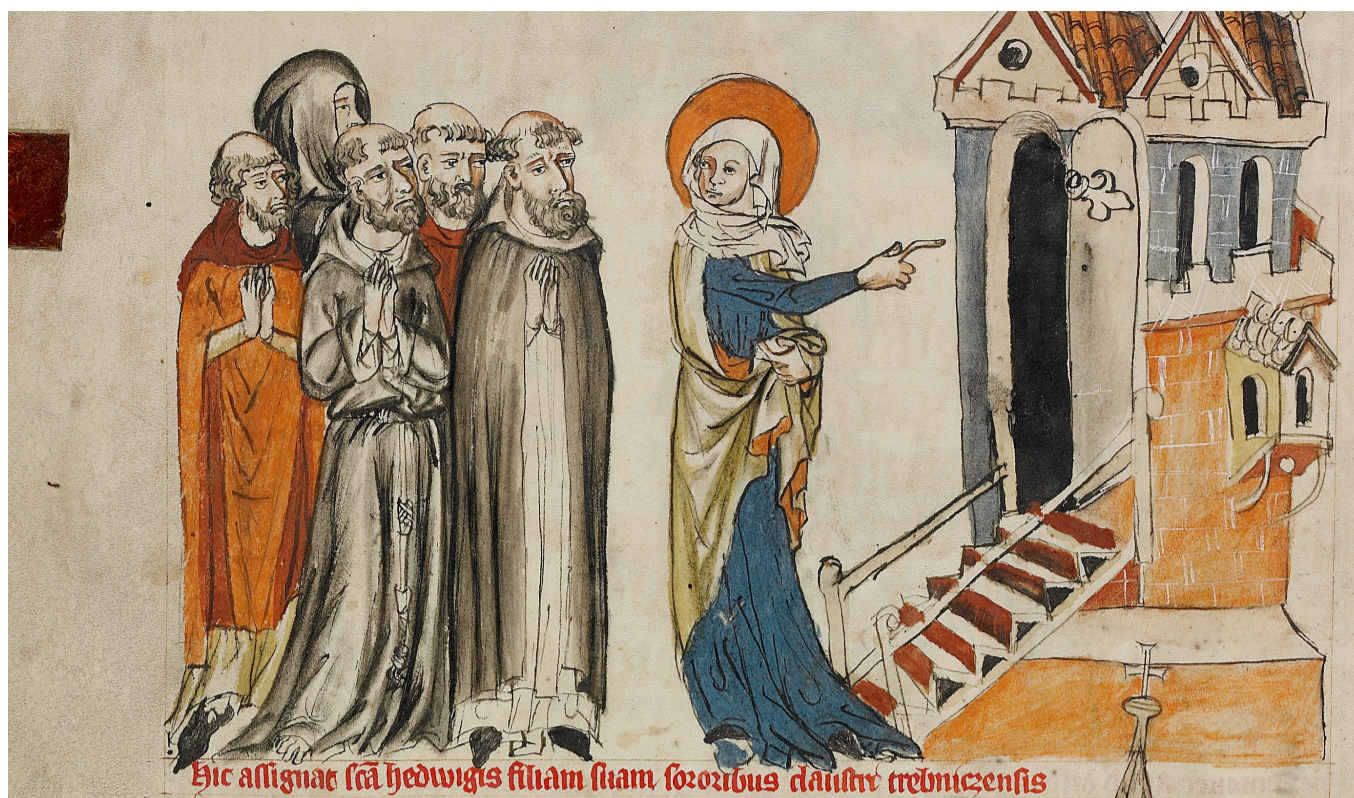 Hic assignat scā hedwigis filiam suam sororibus claustri trebniczensis